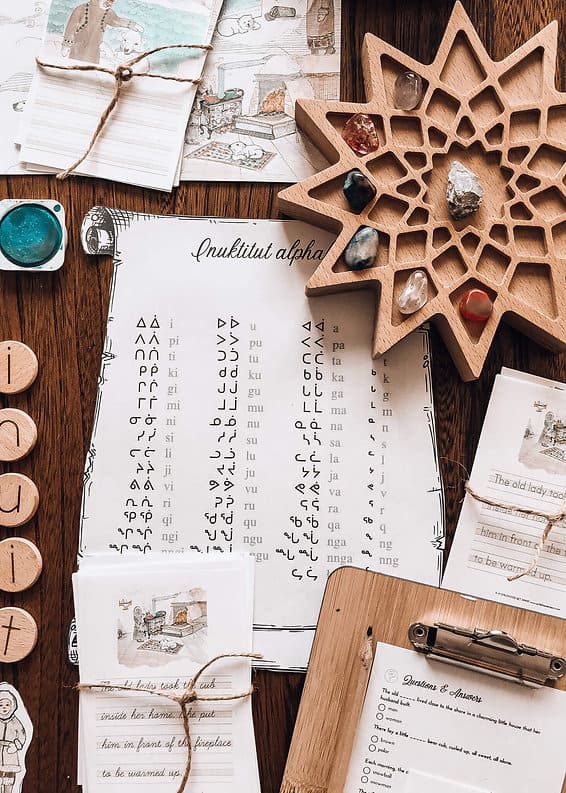 Inuktitut alpha
ᐃ ᐄ i ᐅ ᐆ u ᐊ ᐋ a
ᐱ ᐲ pi ᐳ ᐴ pu ᐸ ᐹ pa
ᑎ ᑏ ti ᑐ ᑑ tu ᑕ ᑖ ta t
ᑭ ᑮ ki ᑯ ᑰ ku ᑲ ᑳ ka ᒃ k
ᒋ ᒌ gi ᒍ ᒎ gu ᒐ ᒑ ga ᒡ g
ᒥ ᒦ mi ᒧ ᒨ mu ᒪ ᒫ ma ᒻ m
ᓂ ᓃ ni ᓄ ᓅ nu ᓇ ᓈ na ᓐ n
ᓯ ᓰ si ᓱ ᓲ su ᓴ ᓵ sa ᔅ s
ᓕ ᓖ li ᓗ ᓘ lu ᓚ ᓛ la ᓪ l
ᔨ ᔩ ji ᔪ ᔫ ju ᔭ ᔮ ja ᔾ j
ᕕ ᕖ vi ᕗ ᕘ vu ᕙ ᕚ va ᕝ v
ᕆ ᕇ ri ᕈ ᕉ ru ᕋ ᕌ ra ᕐ r
ᕿ ᖀ qi ᖁ ᖂ qu ᖃ ᖄ qa ᖅ q
ngi ngu ᖓ ᖔ nga ᖕ ng
nnga
i
n
u
i
t
The old lady took the cub
inside her home. She put
him in front of the fireplace
to be warmed up.
The old lady took
inside her hom
him in front
to be warmed
Questions & Answers
The old lived close to the shore in a charming little house that her
husband built.
man
woman
There lay a little bear cub, curled up, all sweet, all alone.
brown
polar
Each morning, the c
snowball
snowman